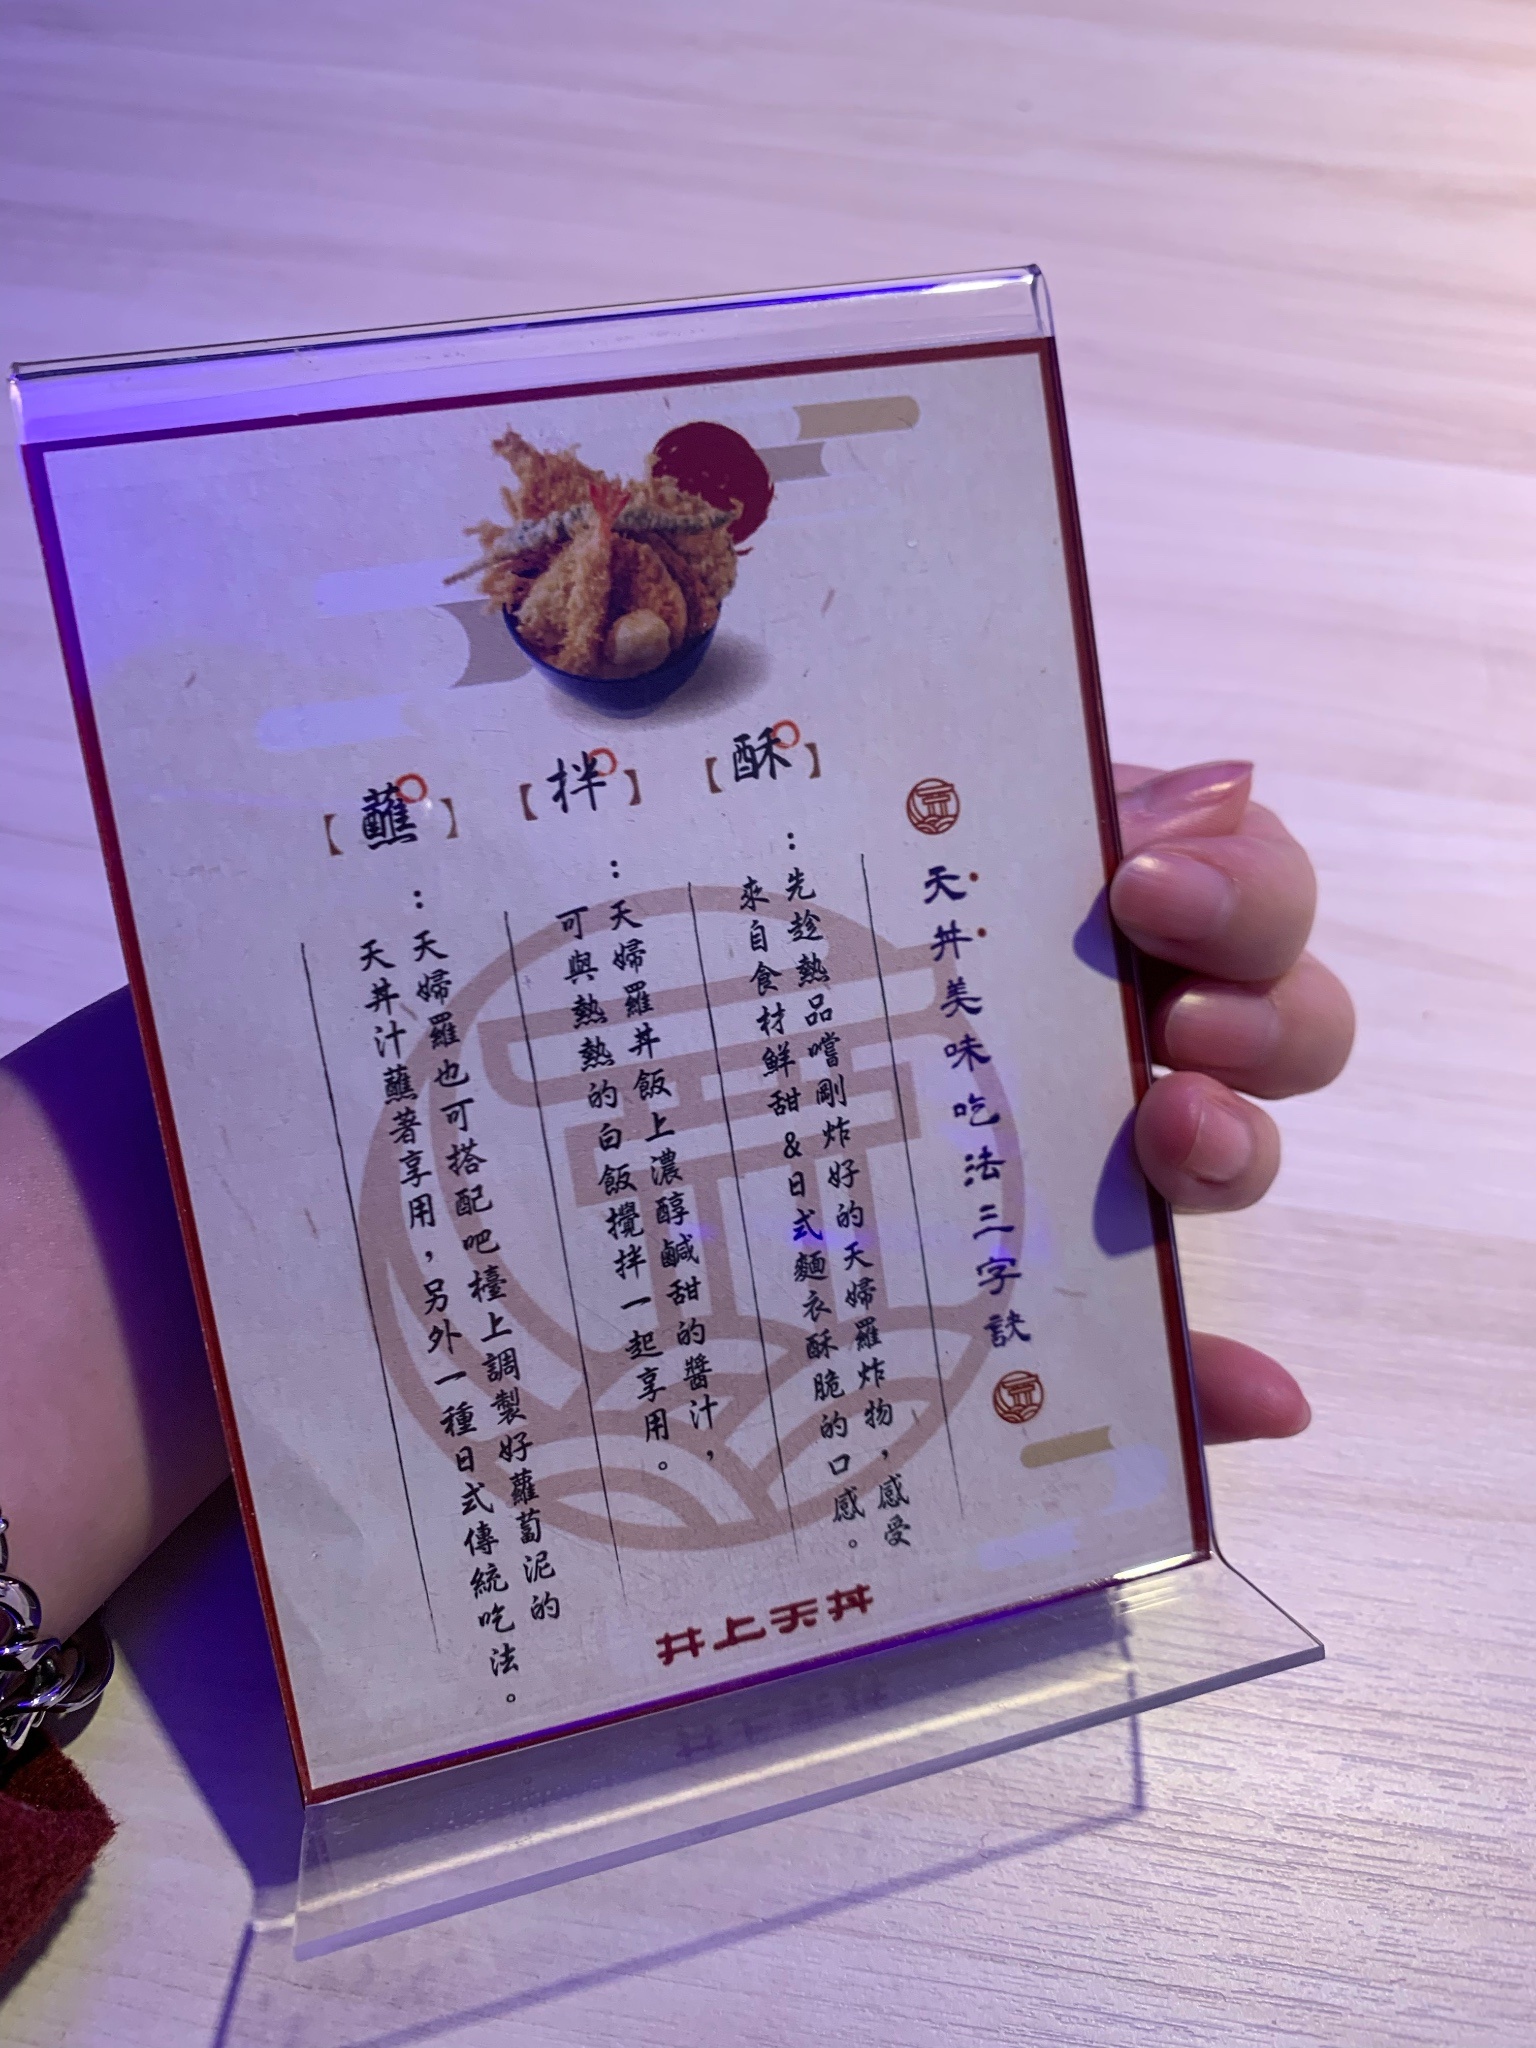 天丼美味吃法三字訣
【酥】
：先趁熱品嚐剛炸好的天婦羅炸物，感受
來自食材鮮甜&日式麵衣酥脆的口感。
【拌】
：天婦羅丼飯上濃醇鹹甜的醬汁，
可與熱熱的白飯攪拌一起享用。
【蘸】
：天婦羅也可搭配吧檯上調製好蘿蔔泥的
天丼汁蘸著享用，另外一種日式傳統吃法。
井上天丼